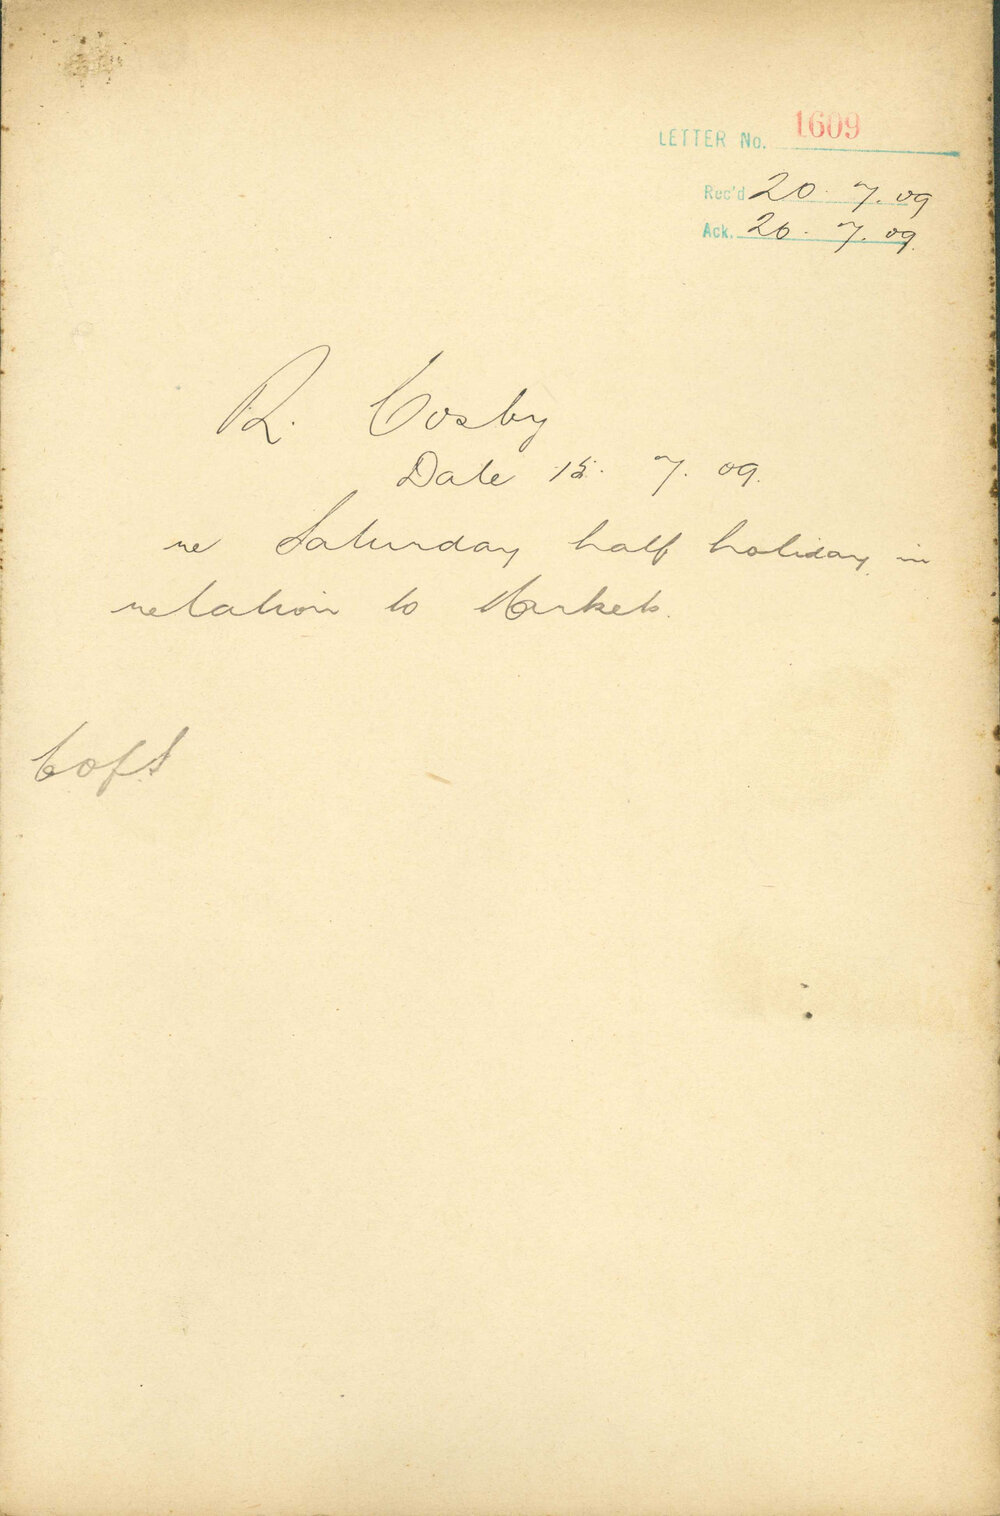 LETTER No. 1609
Rec'd 20. 7. 09
Ack. 20. 7. 09.
R. Cosby
Date 15. 7. 09.
re Saturday half holiday in
relation to Markets.